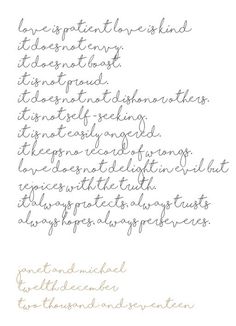 love is patient love is kind
it does not envy.
it does not boast.
it is not proud.
it does not not dishonor others.
it is not self-seeking.
it is not easily angered.
it keeps no record of wrongs.
love does not delight in evil but
rejoices with the truth.
it always protects, always trusts
always hopes, always perseveres.
janet and michael
twelth december
two thousand and seventeen